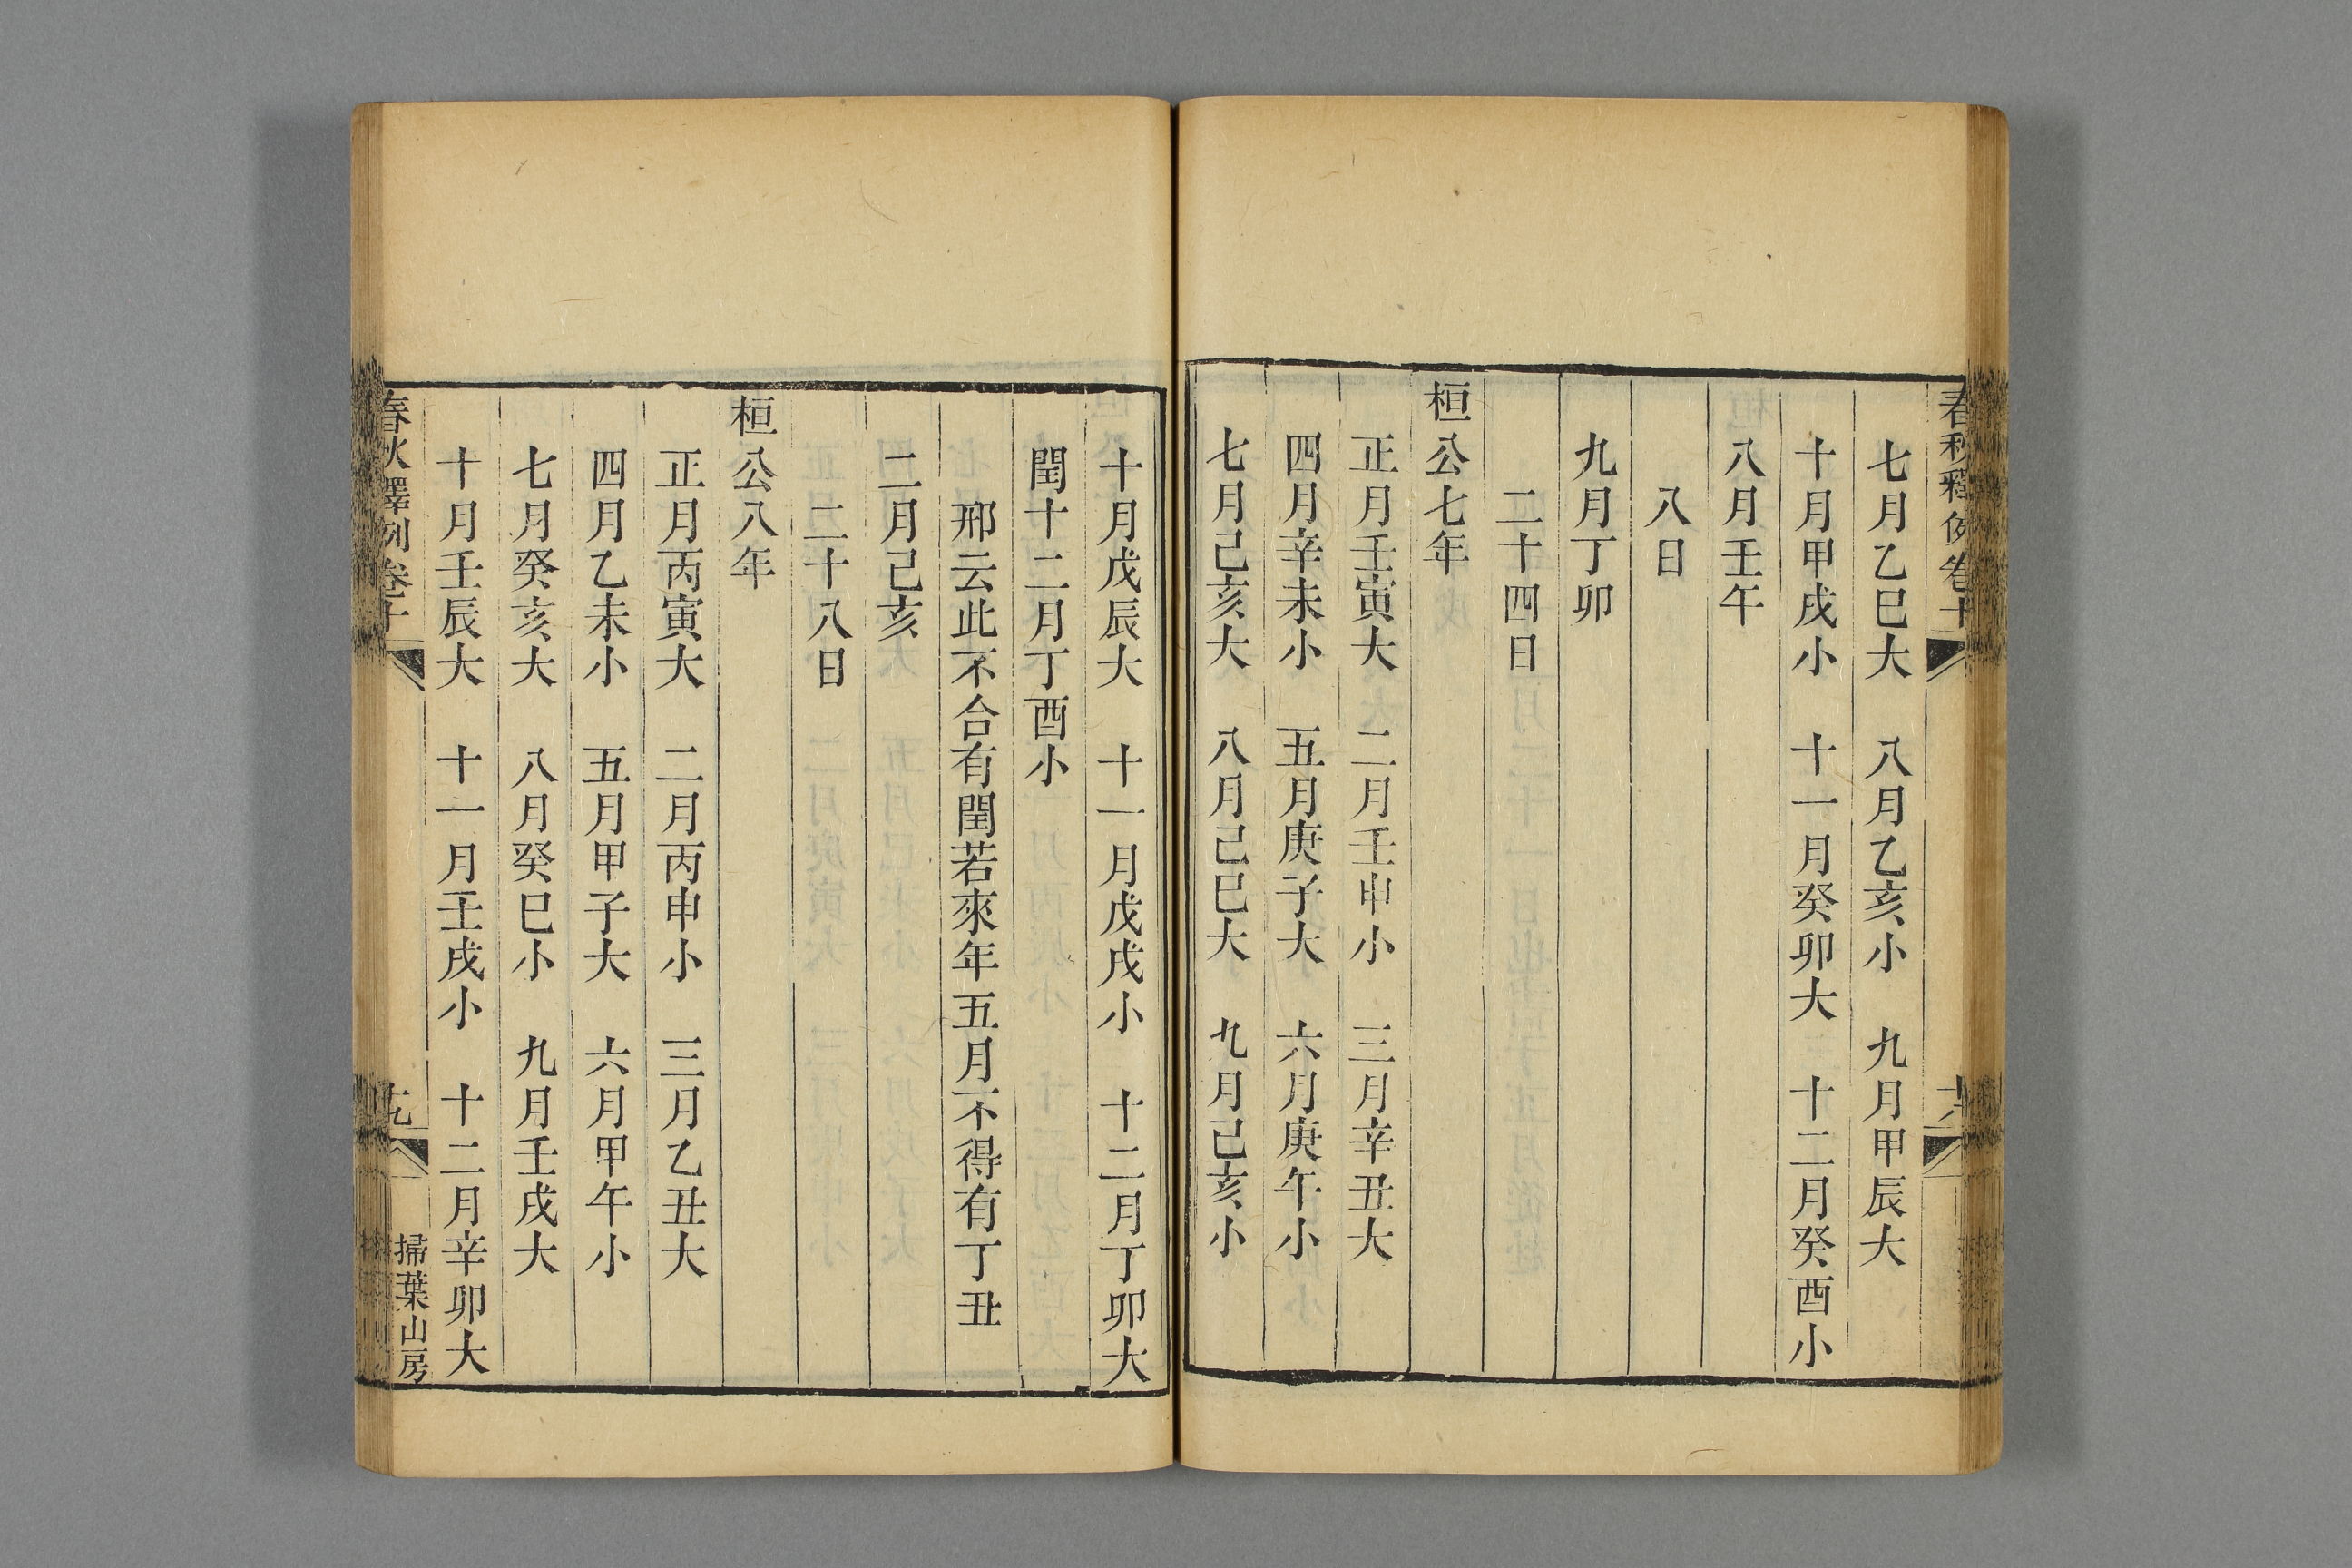 春秋釋例卷十
七月乙巳大 八月乙亥小 九月甲辰大
十月甲戌小 十一月癸卯大 十二月癸酉小
八月壬午
八日
九月丁卯
二十四日
桓公七年
正月壬寅大 二月壬申小 三月辛丑大
四月辛未小 五月庚子大 六月庚午小
七月己亥大 八月己巳大 九月己亥小
十月戊辰大 十一月戊戌小 十二月丁卯大
閏十二月丁酉小
邢云此不合有閏若來年五月不得有丁丑
二月己亥
二十八日
桓公八年
正月丙寅大 二月丙申小 三月乙丑大
四月乙未小 五月甲子大 六月甲午小
七月癸亥大 八月癸巳小 九月壬戌大
十月壬辰大 十一月壬戌小 十二月辛卯大
春秋釋例卷十
掃葉山房